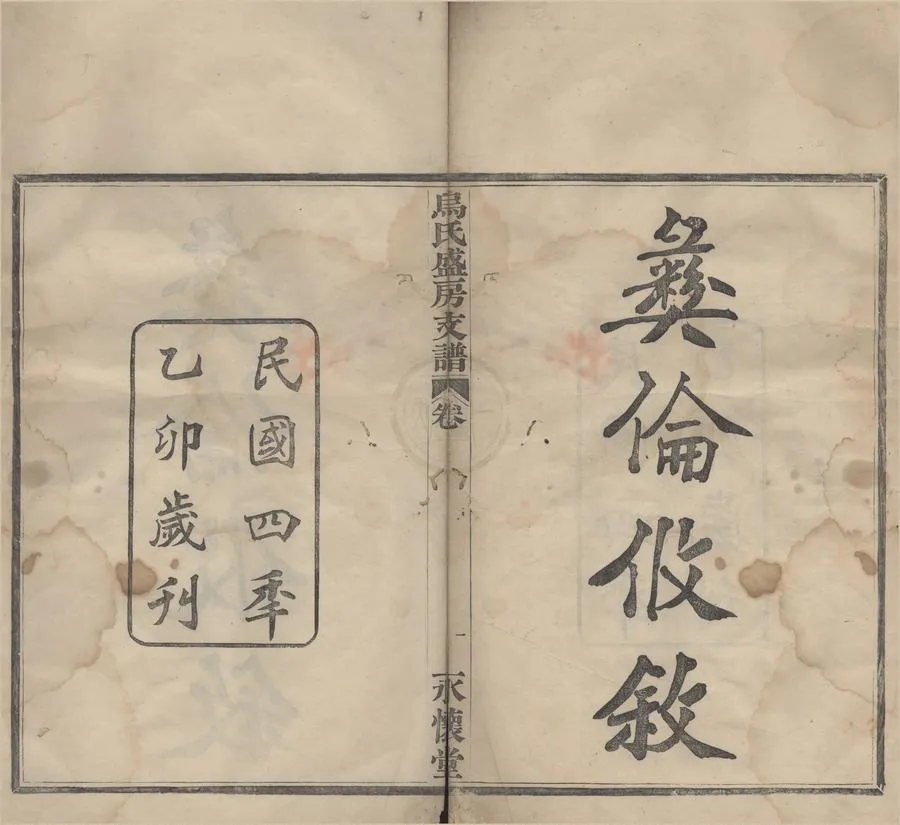 彜倫攸敘
烏氏盛房支譜
卷
一
永懷堂
民國四秊
乙卯歲刊